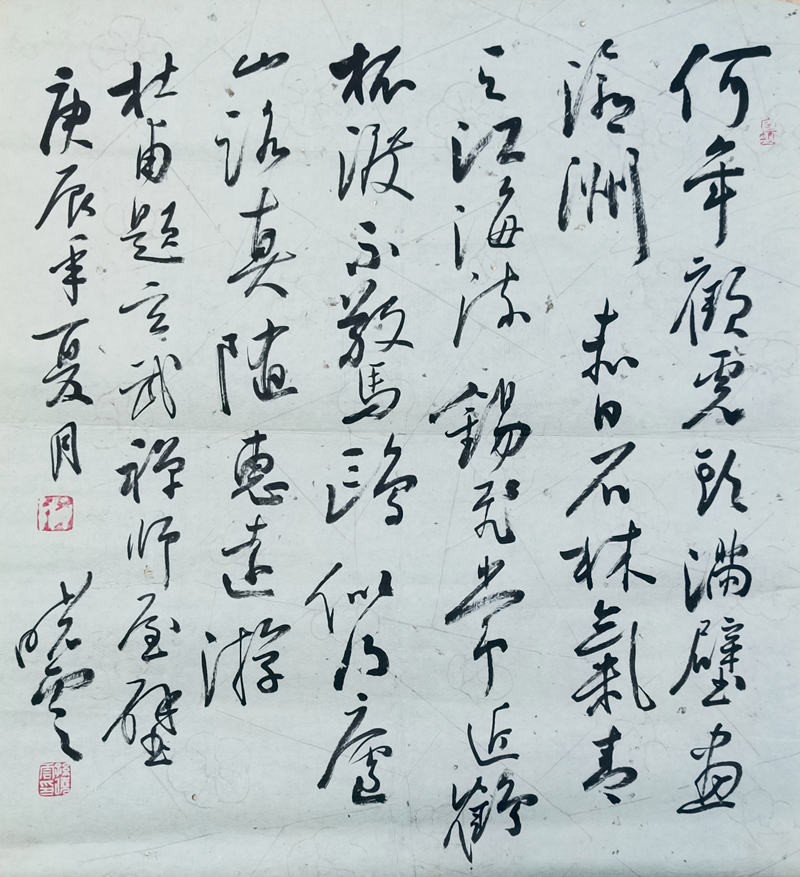 何年顧虎頭滿壁畫
瀛洲赤日石林氣青
天江海流錫飛常近鶴
杯渡不驚鷗似得廬
山路真隨惠遠游
杜甫題玄武禪師屋壁
庚辰年夏月
曉雲